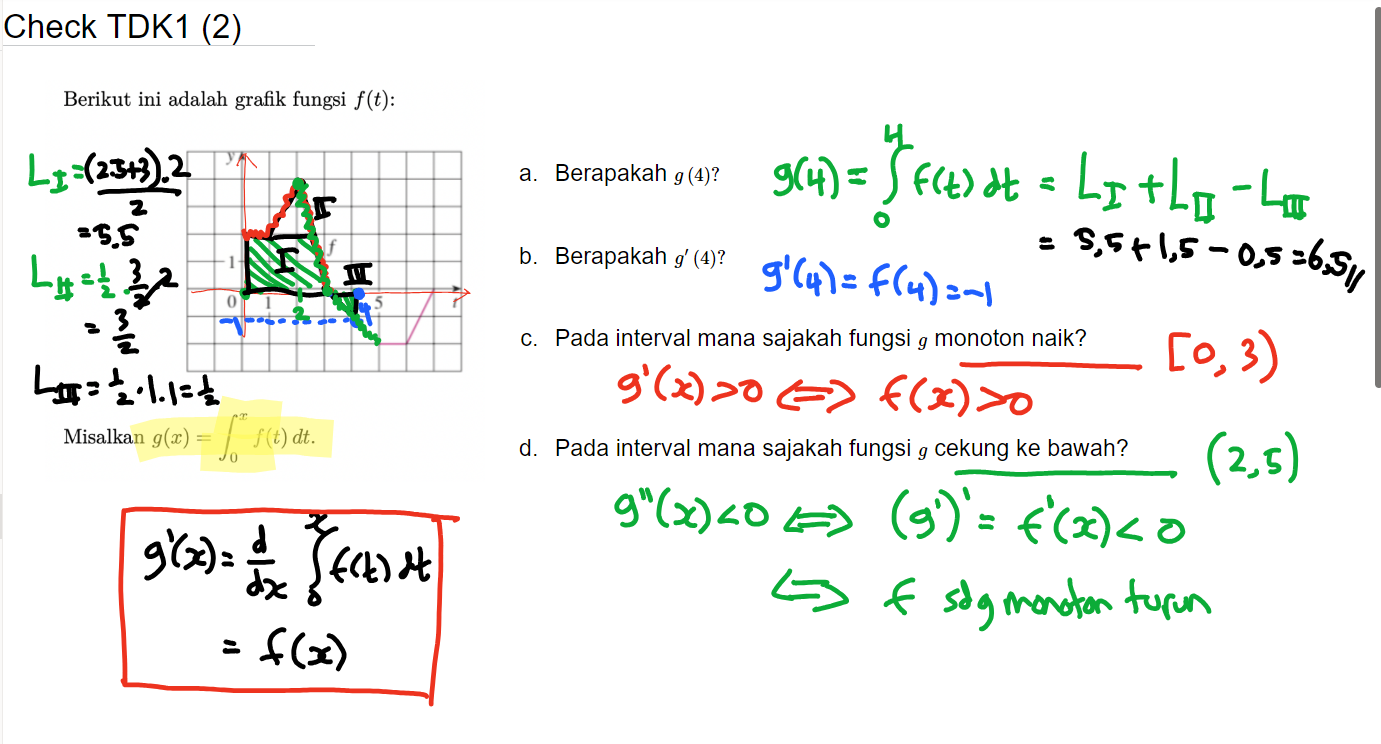 Check TDK1 (2)
Berikut ini adalah grafik fungsi f(t):
L_I = (2.5+3).2 / 2
= 5,5
L_II = 1/2 . 3/2 . 2
= 3/2
L_III = 1/2 . 1 . 1 = 1/2
y
II
f
I
III
1
0 1 2 4 5 t
-1
Misalkan g(x) = ∫_0^x f(t) dt.
g'(x) = d/dx ∫_0^x f(t) dt
= f(x)
a. Berapakah g (4)?
g(4) = ∫_0^4 f(t) dt = L_I + L_II - L_III
= 5,5 + 1,5 - 0,5 = 6,5 //
b. Berapakah g' (4)?
g'(4) = f(4) = -1
c. Pada interval mana sajakah fungsi g monoton naik?
[0, 3)
g'(x) >0 <=> f(x) >0
d. Pada interval mana sajakah fungsi g cekung ke bawah?
(2,5)
g"(x) <0 <=> (g')' = f'(x) < 0
<=> f sdg monoton turun